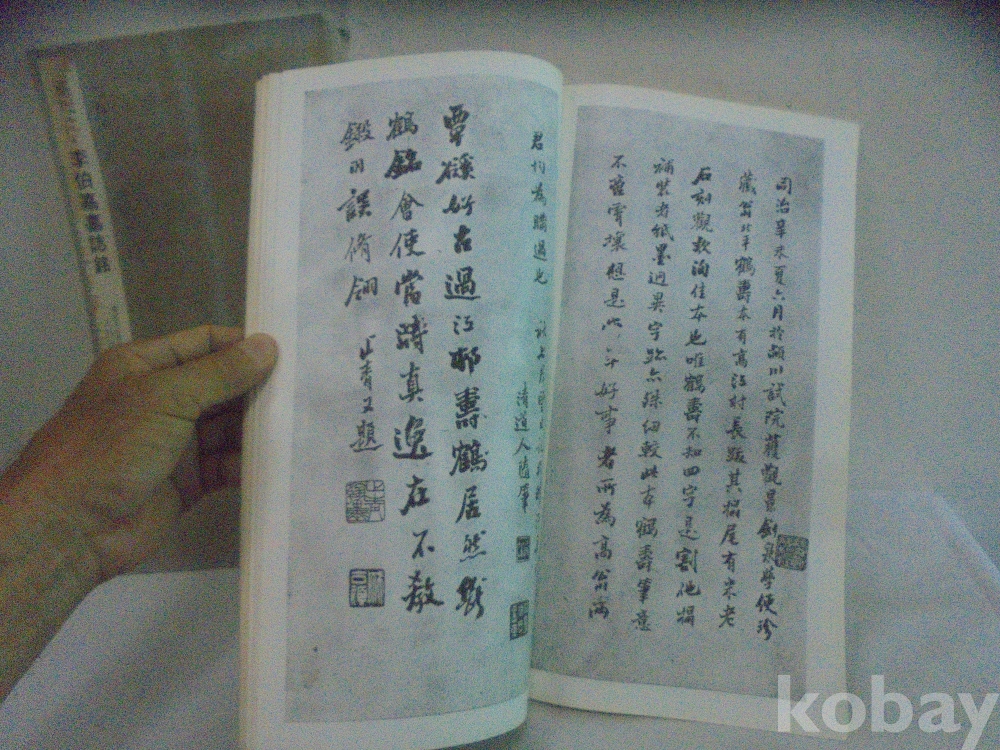 同治辛未夏六月於潁川試院獲觀景劍泉學使珍
藏翁北平鶴壽本有高江村長跋其搨尾有宋老
石刻觀款洵佳本也唯鶴壽不知四字是割他搨
補裝者紙墨迥異字跡亦殊細較此本鶴壽筆意
不啻霄壤想是此等好事者所為高翁
君均為購過也
清道人隨筆
覃磎好古過江邨壽鶴居然
鶴銘會使當時真逸在不教
鍛羽誤脩翎
止青又題
李伯嘉墓誌銘
kobay